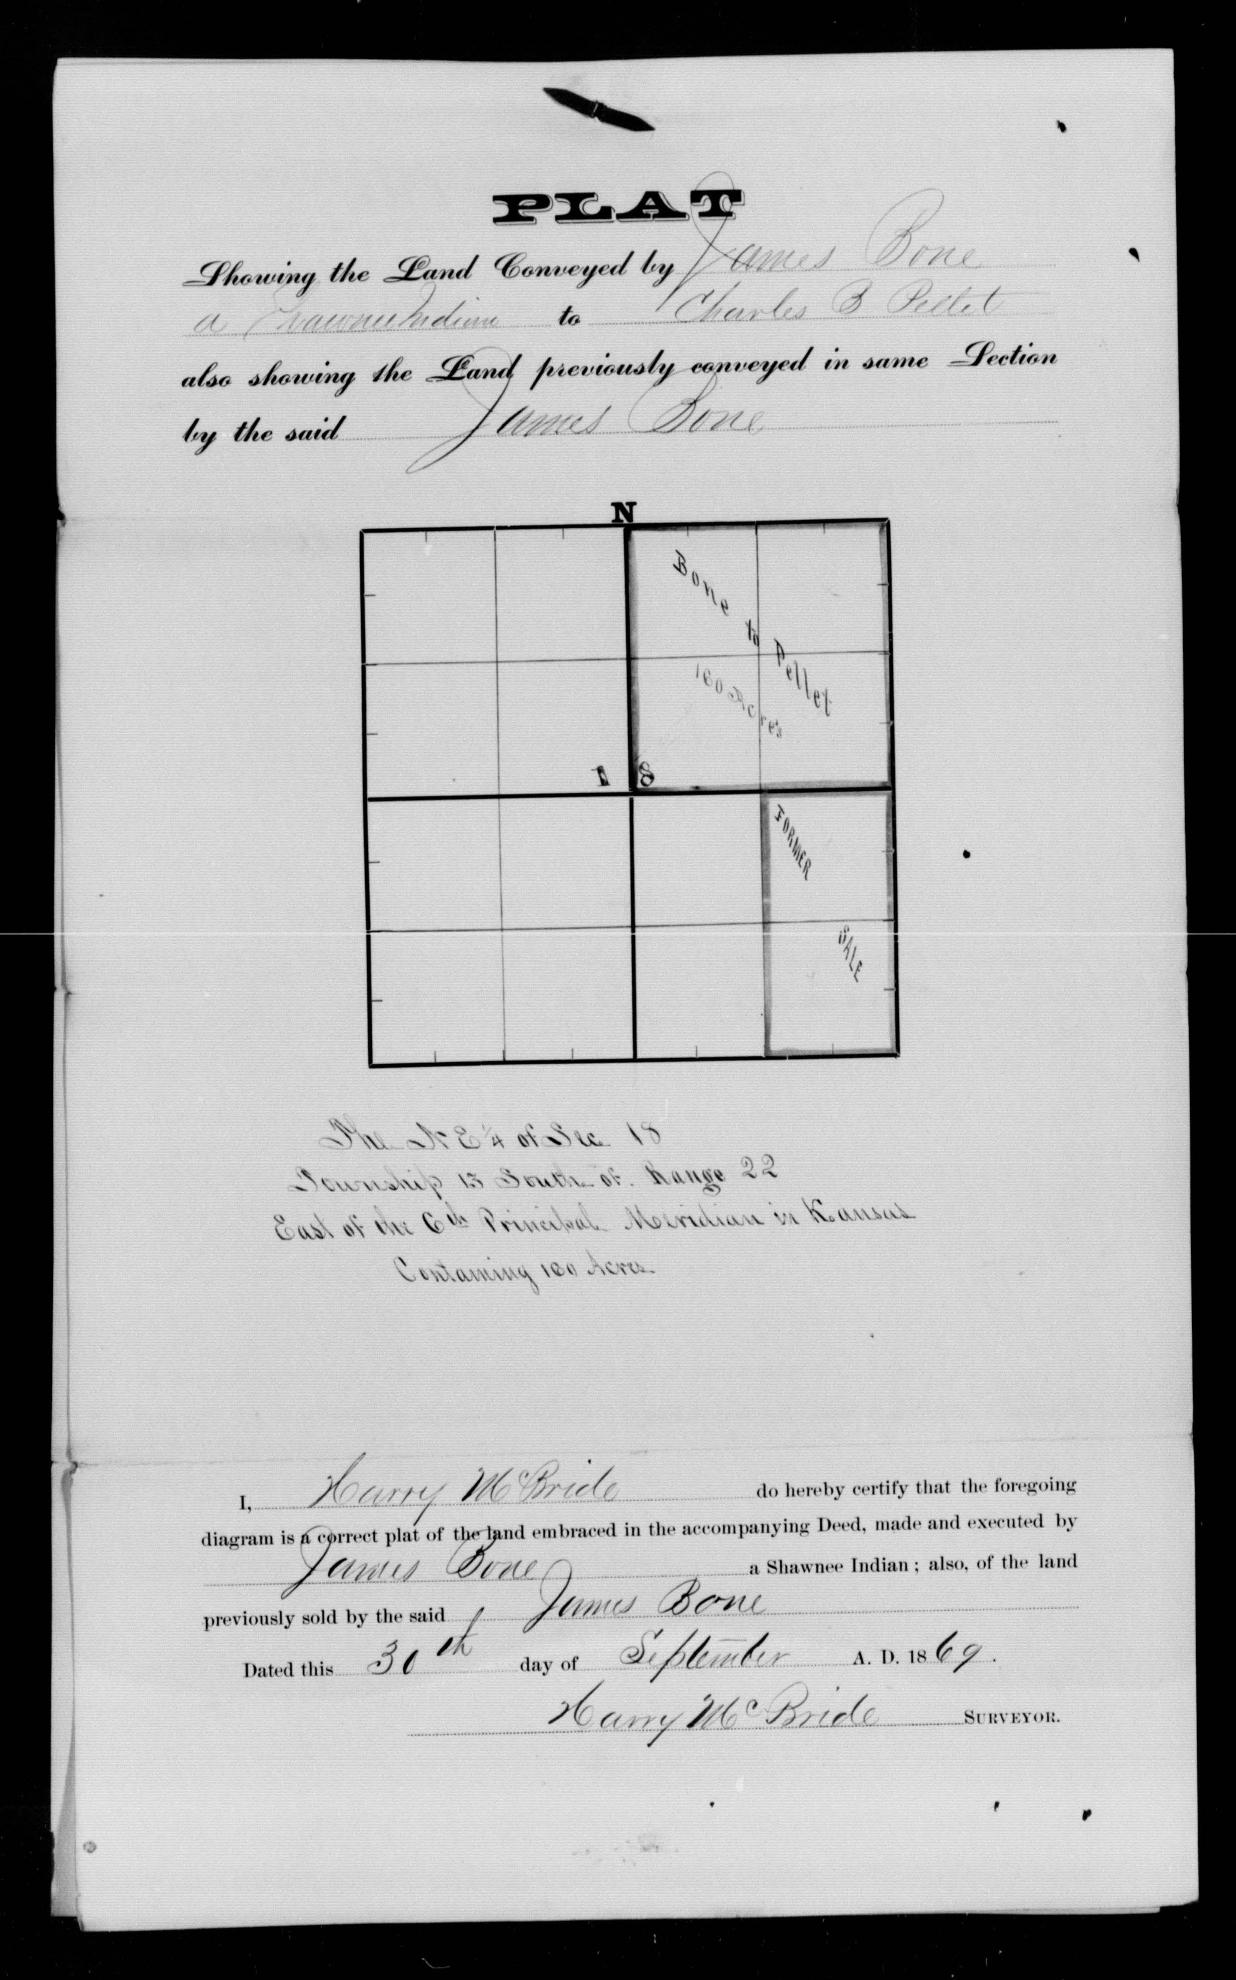 PLAT
Showing the Land Conveyed by James Bone
a Shawnee Indian to Charles B Pellet
also showing the Land previously conveyed in same Section
by the said James Bone
N
Bone to Pellet
160 Acres
18
FORMER
SALE
The N E ¼ of Sec 18
Township 13 South of Range 22
East of the 6th Principal Meridian in Kansas
Containing 160 Acres
I, Harry McBride do hereby certify that the foregoing
diagram is a correct plat of the land embraced in the accompanying Deed, made and executed by
James Bone a Shawnee Indian; also, of the land
previously sold by the said James Bone
Dated this 30th day of September A. D. 1869.
Harry McBride SURVEYOR.